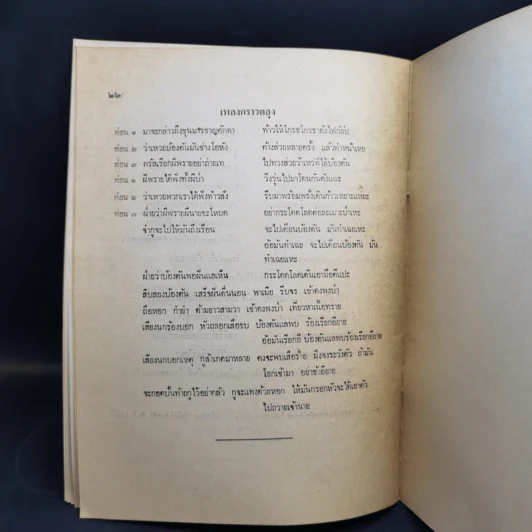 ๒๒
เพลงกราวตลุง
ท่อน ๑ มาจะกล่าวถึงขุนมารชาญศักดา ท้าวให้โกรธโกรธาดังไฟกัลป์
ท่อน ๒ ว่าเหวยบ้องตันมันช่างโอหัง ค้างส่วยหลายครั้ง แล้วทำหน้าเหย
ท่อน ๓ ตรัสเรียกผีพรายอย่าถ่ายเท ไปทวงส่วยว่าเหว่ที่อ้ายบ้องตัน
ท่อน ๑ ผีพรายได้ฟังทั้งผีป่า วิ่งวุ่นไปมาโดนกันดังแอะ
ท่อน ๒ ว่าเหวยพวกเราได้ฟังท้าวสั่ง รีบมาพร้อมพรั่งเดินก้าวเหยาะแหยะ
ท่อน ๓ ฝ่ายว่าผีพรายผีนายจะโหมด อย่ากระโดดโลดต่อยแวะ
จำกูจะไปให้มันถึงเรือน จะไปเตือนบ้องตัน มันทำเฉยแหะ
อ้อมันทำเฉย จะไปเตือนบ้องตัน มัน
ทำเฉยแหะ
ฝ่ายว่าบ้องตันพอผันแลเห็น กระโดดโลดเต้นเอามือตีแปะ
สิบสองบ้องตัน เสร็จผันตื่นนอน พาเมีย รีบจร เข้าดงพงป่า
ถือหอก กำยำ ตามยาวสามวา เข้าดงพงป่า เที่ยวหาเนื้อทราย
เสียงนกร้องบอก หัวถลอกเสือรบ บ้องตันแลพบ ร้องเรียกอียาย
อ้อมันเรียกอี บ้องตันแลพบร้องเรียกอียาย
เสียงนกบอกเหตุ กูสังเกตมาหลาย คงจะพบเสือร้าย มึงจงระวังตัว ถ้ามัน
โฮกเข้ามา อย่าช้าอียาย
จะกอดบั้นท้ายกูไว้อย่ากลัว กูจะแทงด้วยหอก ให้มันกรอกหัวจะได้เอาตัว
ไปถวายเจ้านาย